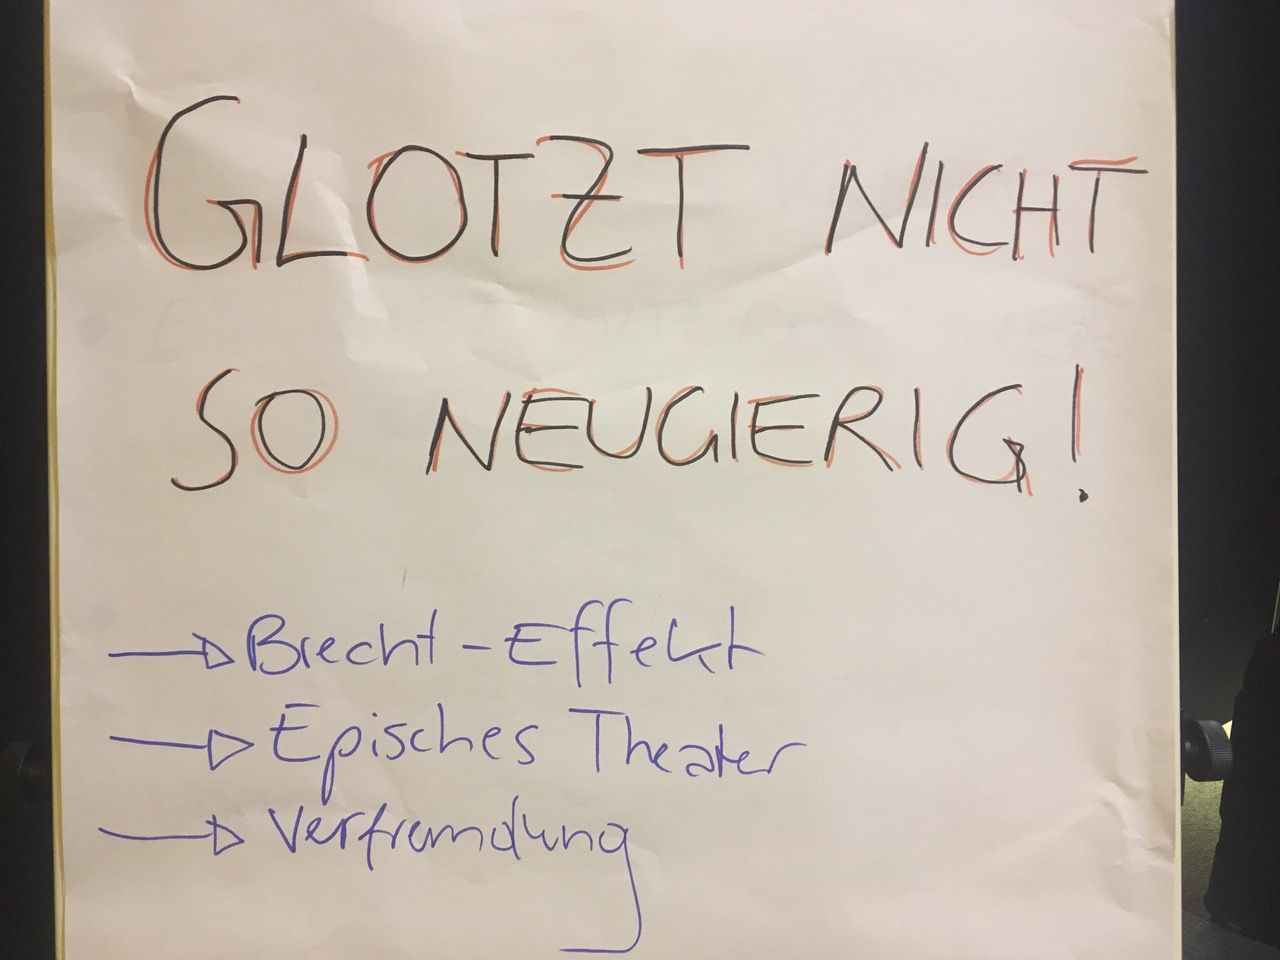 GLOTZT NICHT
SO NEUGIERIG!
→ Brecht - Effekt
→ Episches Theater
→ Verfremdung